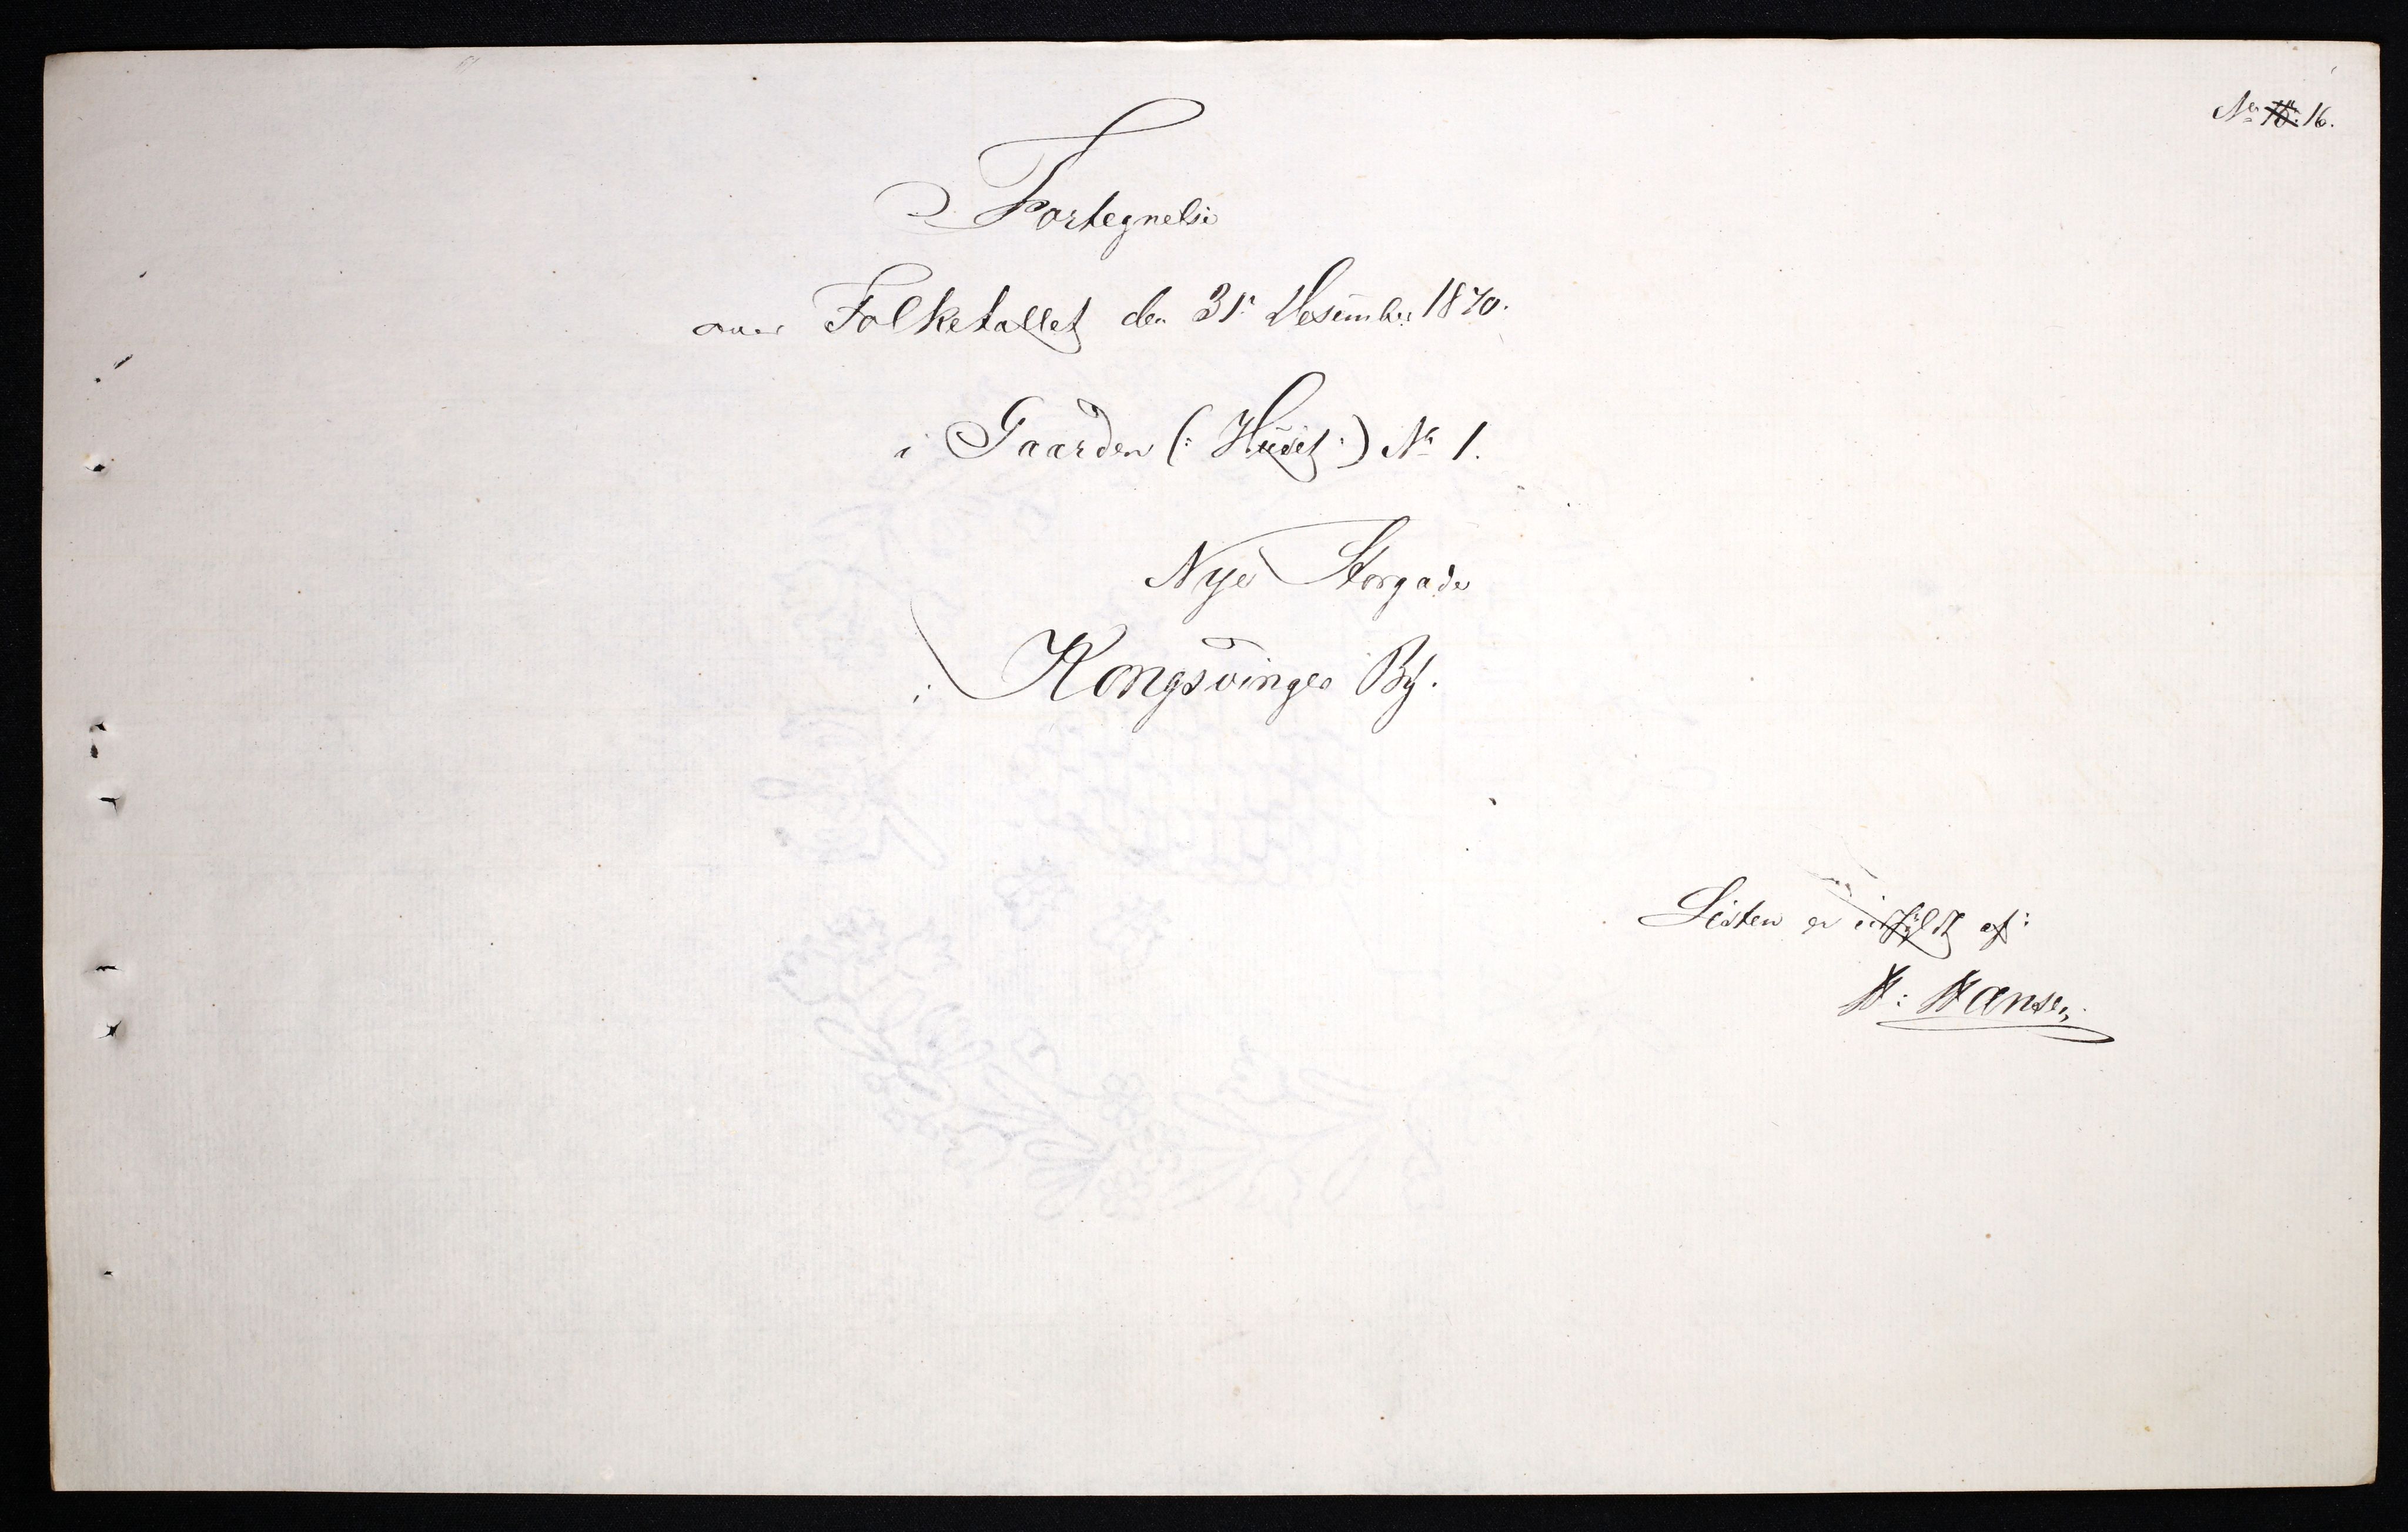 No 16.
Fortegnelse
over Folketallet den 31te Desember 1870.
i Gaarden (: Huset :) No 1.
Nye Storgade
i Kongsvinger By.
Listen er udfyldt af:
H: Hansen